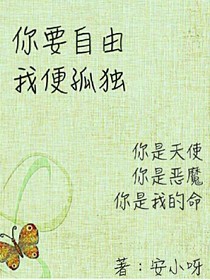 你要自由
我便孤独
你是天使
你是恶魔
你是我的命
著：安小呀